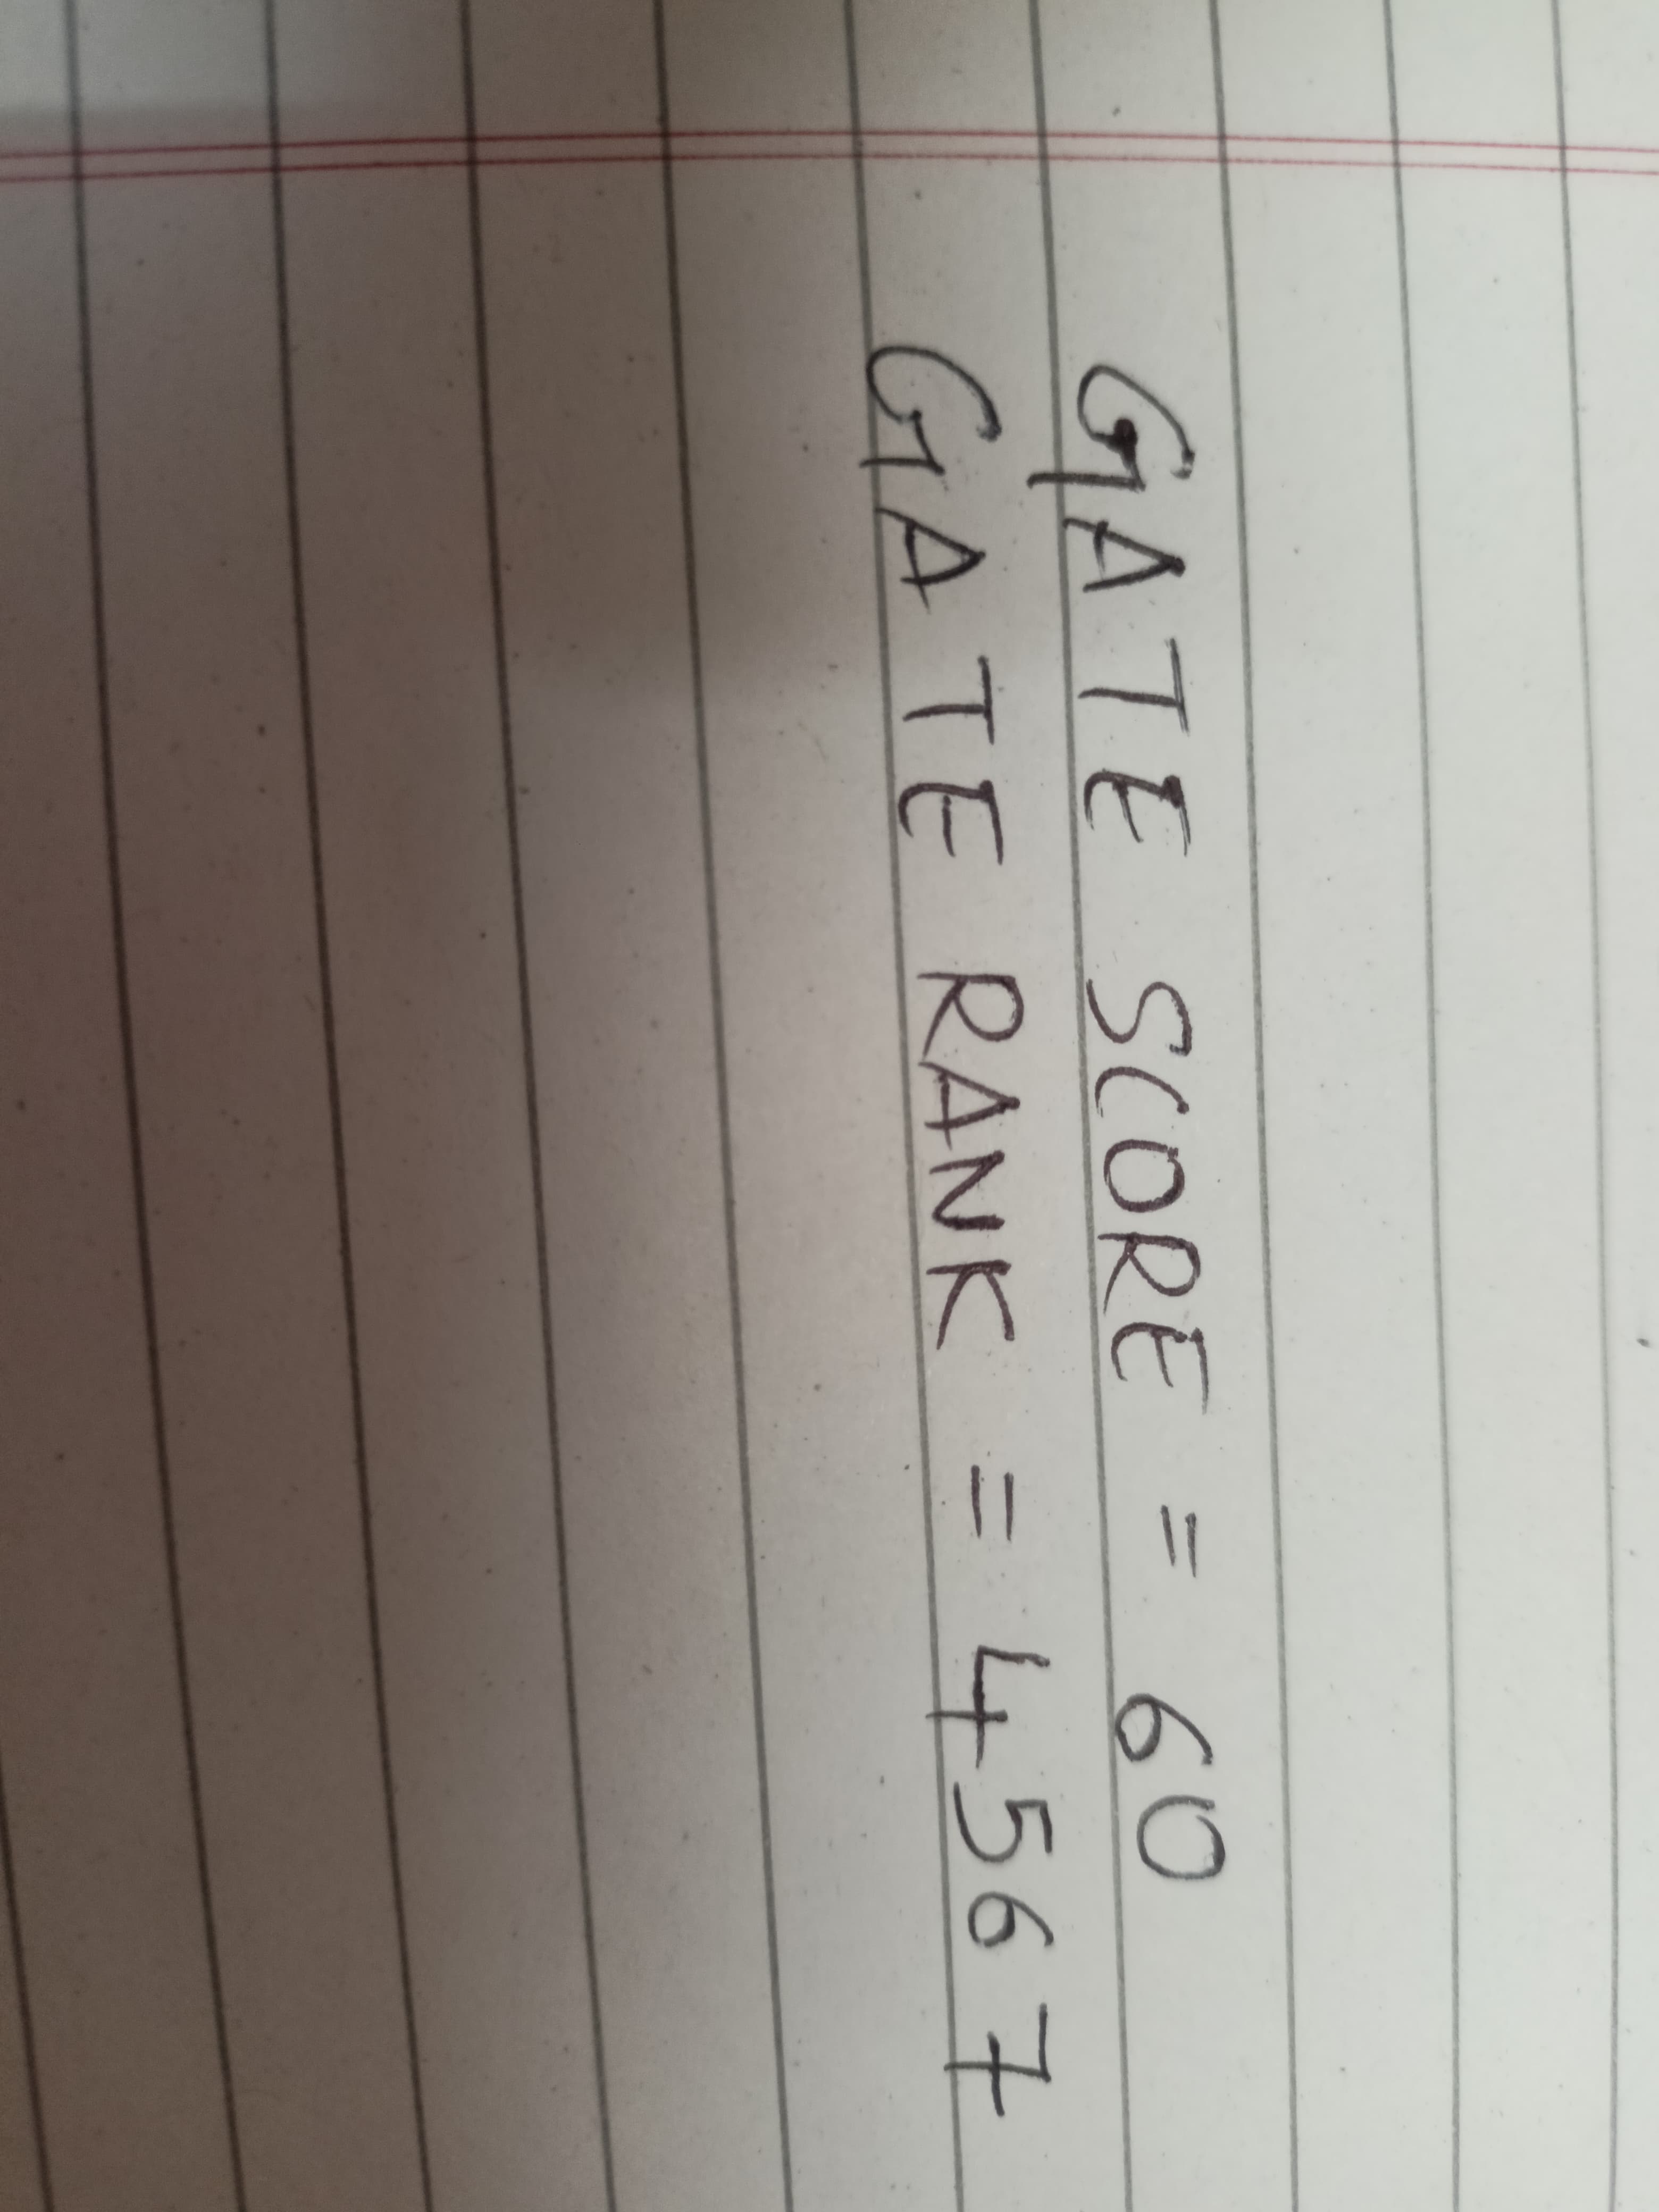 GATE SCORE = 60
GATE RANK = 4567